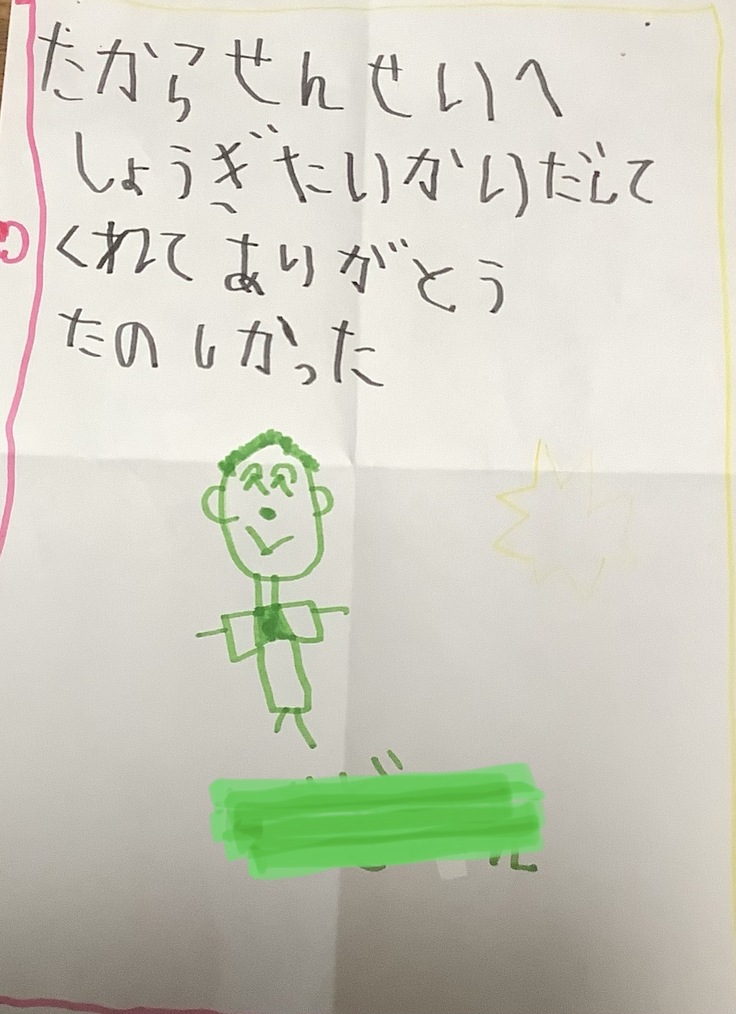 たからせんせいへ
しょうぎたいかいだして
くれてありがとう
たのしかった